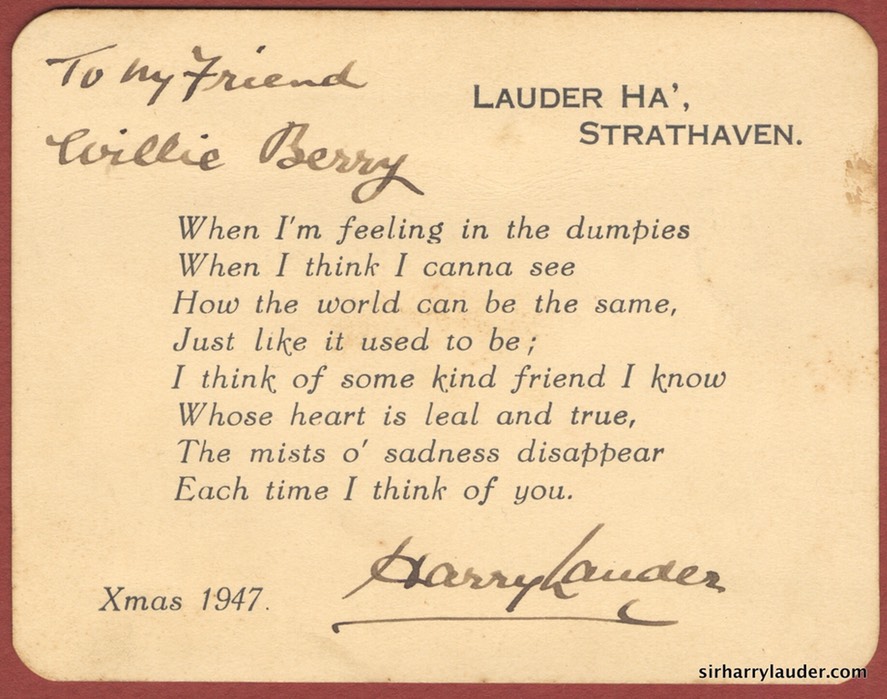 To my Friend
Willie Berry
LAUDER HA',
STRATHAVEN.
When I'm feeling in the dumpies
When I think I canna see
How the world can be the same,
Just like it used to be;
I think of some kind friend I know
Whose heart is leal and true,
The mists o' sadness disappear
Each time I think of you.
Harry Lauder
Xmas 1947.
sirharrylauder.com